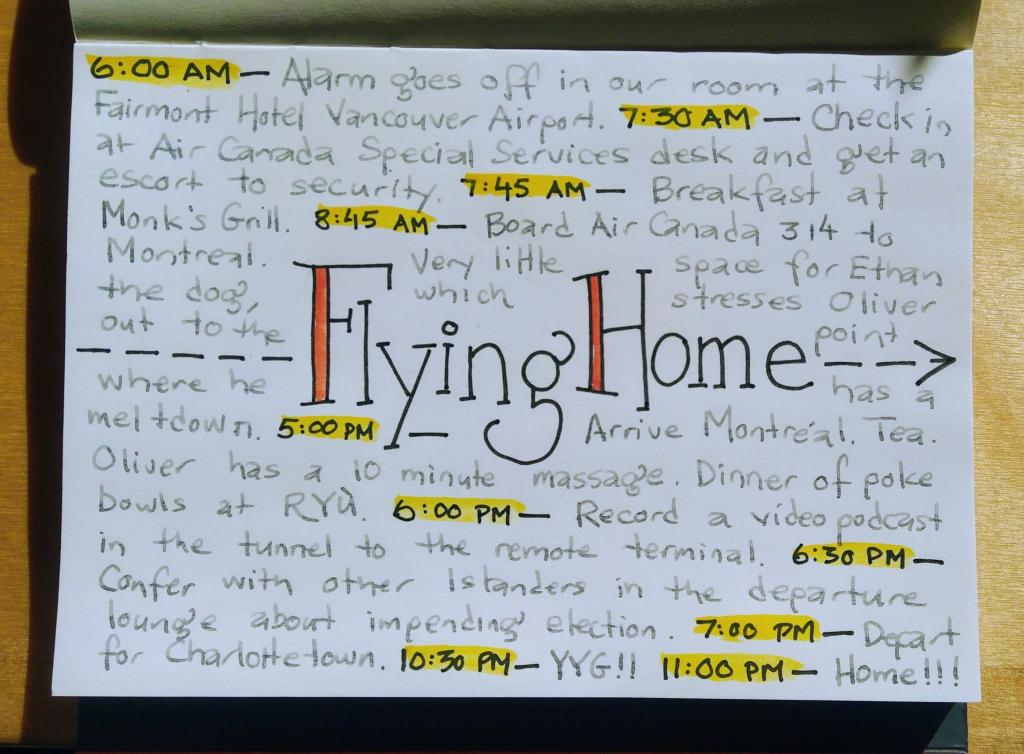 6:00 AM — Alarm goes off in our room at the
Fairmont Hotel Vancouver Airport. 7:30 AM — Check in
at Air Canada Special Services desk and get an
escort to security. 7:45 AM — Breakfast at
Monk's Grill. 8:45 AM — Board Air Canada 314 to
Montreal. Very little space for Ethan
the dog, which stresses Oliver
out to the point
Flying Home
where he has a
meltdown. 5:00 PM — Arrive Montréal. Tea.
Oliver has a 10 minute massage. Dinner of poke
bowls at RYÙ. 6:00 PM — Record a video podcast
in the tunnel to the remote terminal. 6:30 PM —
Confer with other Islanders in the departure
lounge about impending election. 7:00 PM — Depart
for Charlottetown. 10:30 PM — YYG!! 11:00 PM — Home!!!